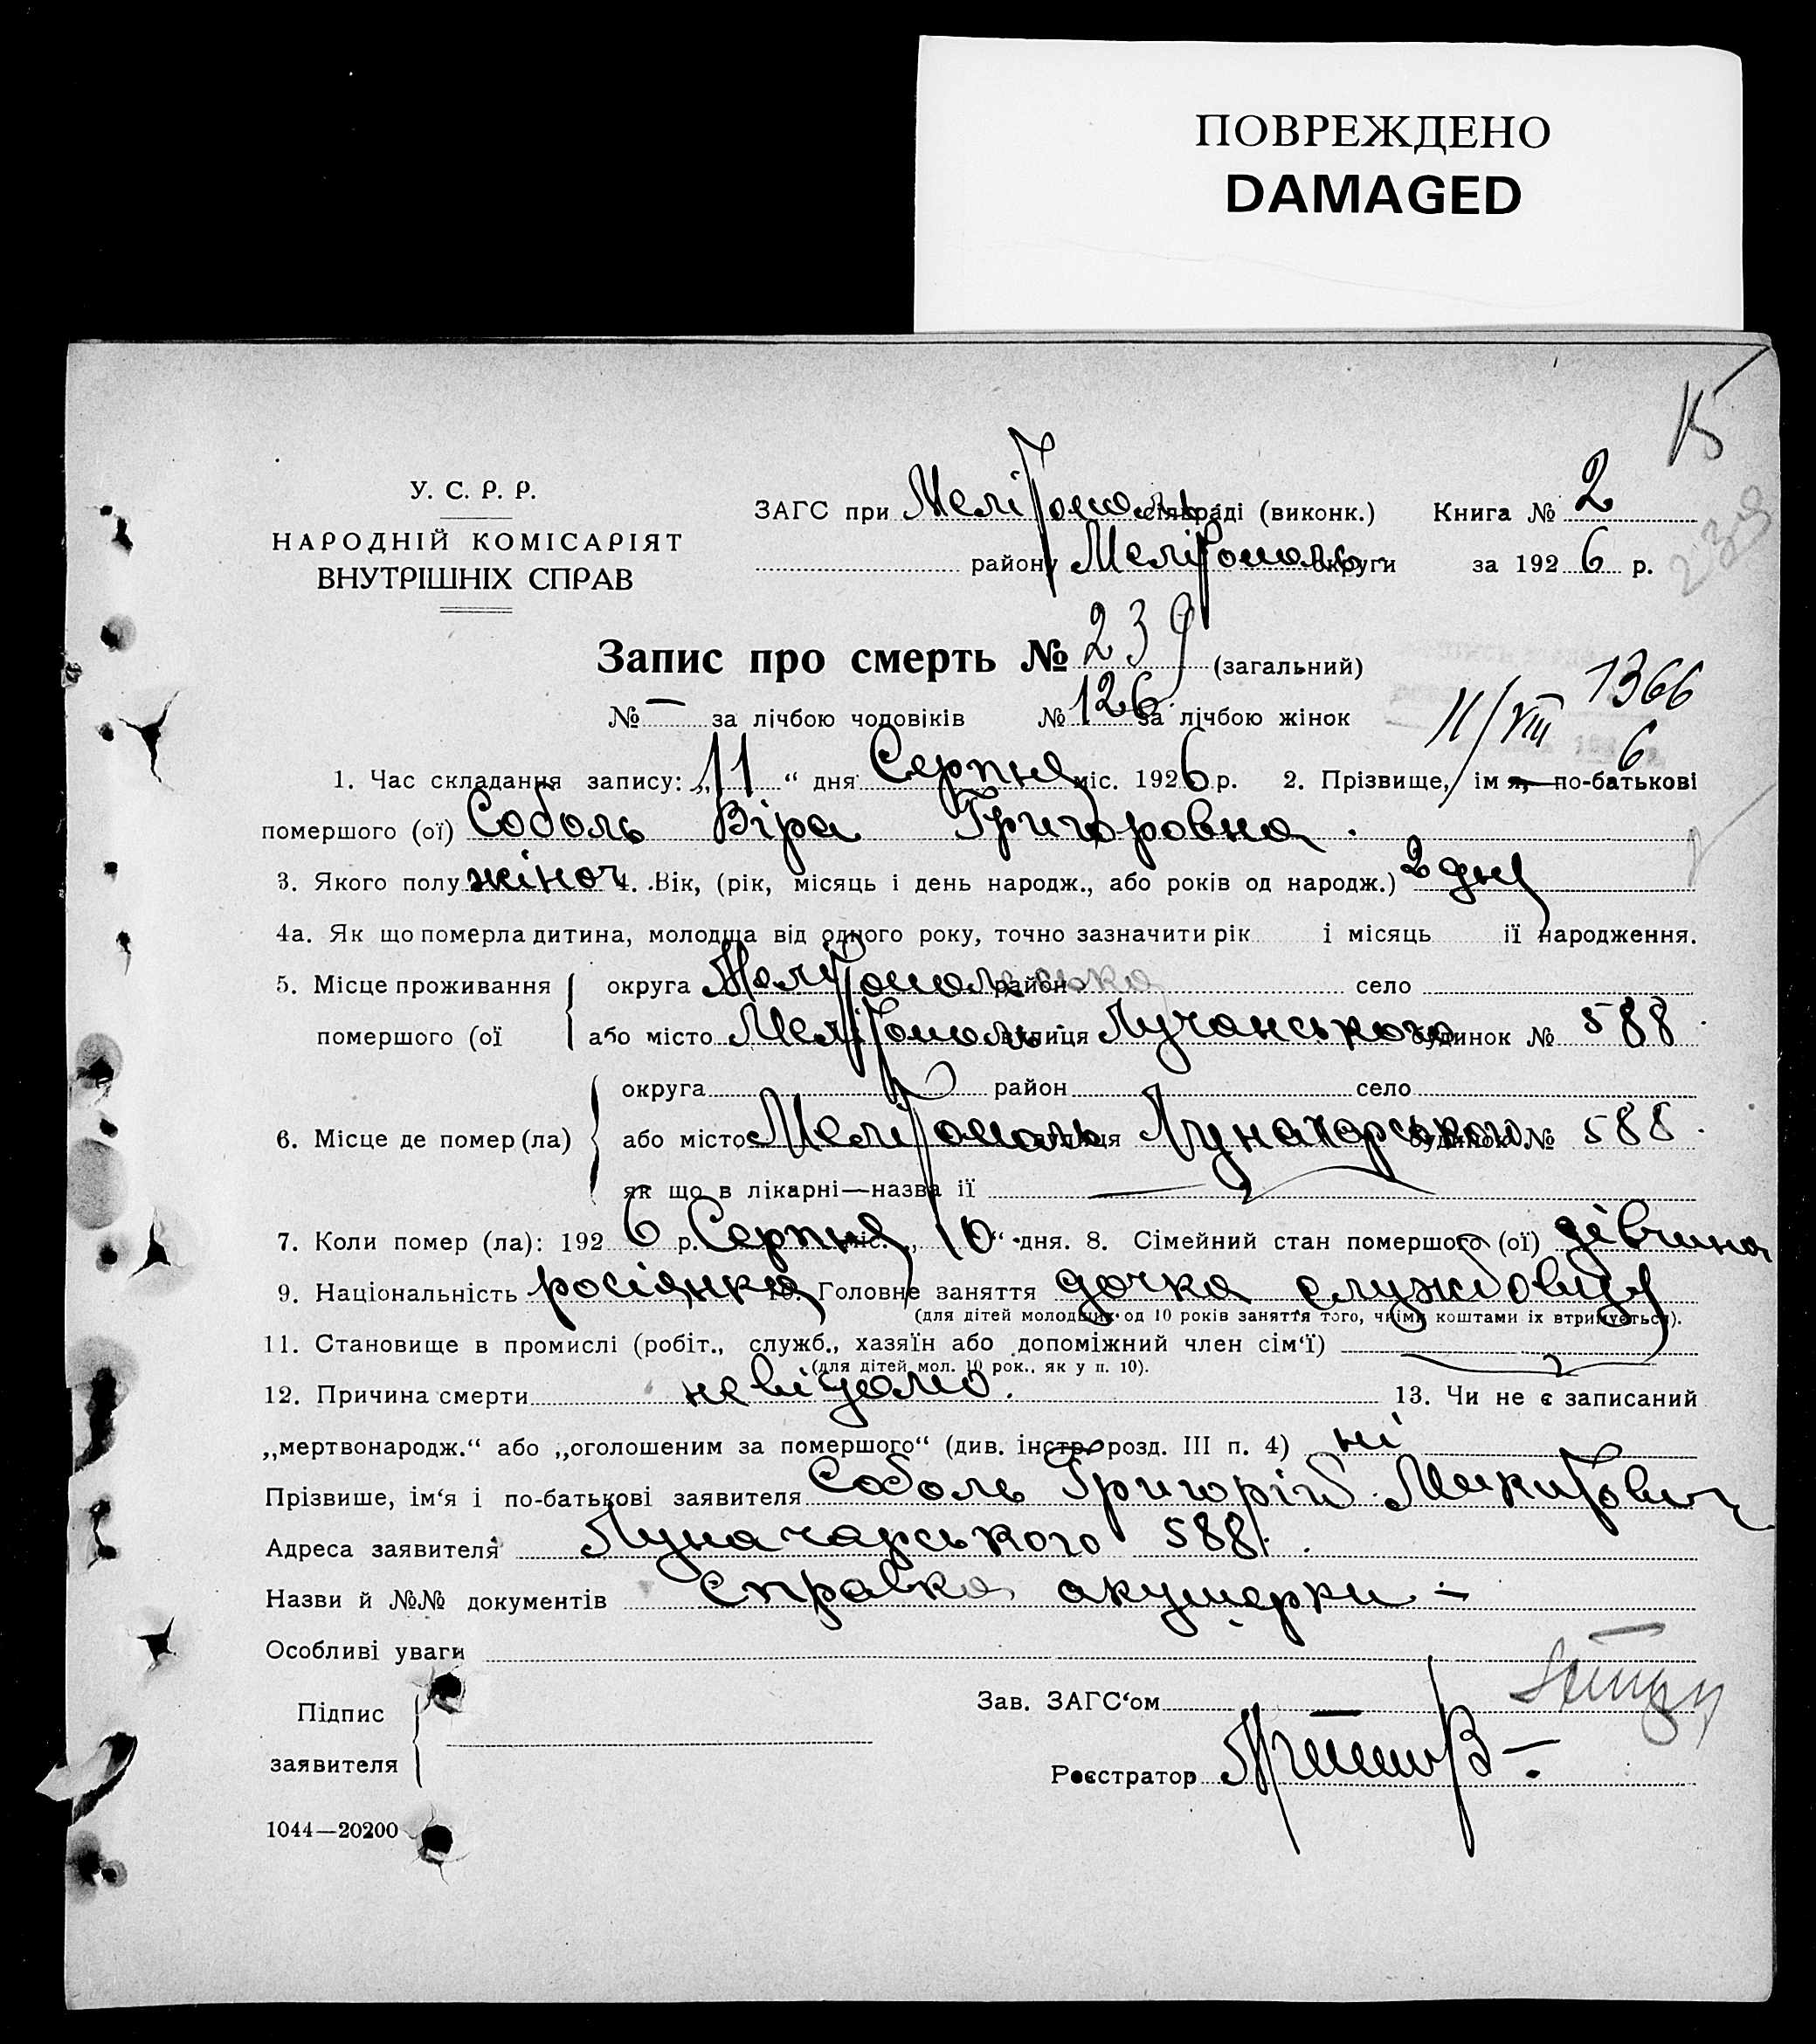 ПОВРЕЖДЕНО
DAMAGED
15
У. С. Р. Р.
НАРОДНІЙ КОМІСАРІЯТ
ВНУТРІШНІХ СПРАВ
ЗАГС при Мелітополь сільраді (виконк.) Книга № 2
району Мелітополь округи за 1926 р.
239
Запис про смерть № 239 (загальний)
№ — за лічбою чоловіків № 126 за лічбою жінок
1366
11/VIII 6
1. Час складання запису: „11“ дня Серпня міс. 1926 р. 2. Прізвище, ім я, по-батькові
помершого (ої) Соболь Віра Григоровна.
3. Якого полу жіноч 4. Вік, (рік, місяць і день народж., або років од народж.) 2 дні
4а. Як що померла дитина, молодща від одного року, точно зазначити рік і місяць її народження.
5. Місце проживання округа Мелітопольська район село
помершого (ої або місто Мелітополь вулиця Лучанського будинок № 588.
округа район село
6. Місце де помер (ла) або місто Мелітополь вулиця Луначарського будинок № 588.
як що в лікарні—назва її —
7. Коли помер (ла): 1926 р. Серпня міс. „10“ дня. 8. Сімейний стан помершого (ої) дівчина
9. Національність росіянка 10. Головне заняття дочка службовця
(для дітей молодших од 10 років заняття того, чиїми коштами їх втримується).
11. Становище в промислі (робіт., служб., хазяїн або допоміжний член сім‘ї) —
(для дітей мол. 10 рок., як у п. 10).
12. Причина смерти невідомо. 13. Чи не є записаний
„мертвонародж.“ або „оголошеним за помершого“ (див. інстр. розд. III п. 4) ні
Прізвише, ім‘я і по-батькові заявителя Соболь Григорій Микитович
Адреса заявителя Луначарського 588.
Назви й №№ документів Справка акушерки —
Особливі уваги
Підпис
заявителя
Зав. ЗАГС‘ом
Реєстратор
1044—20200